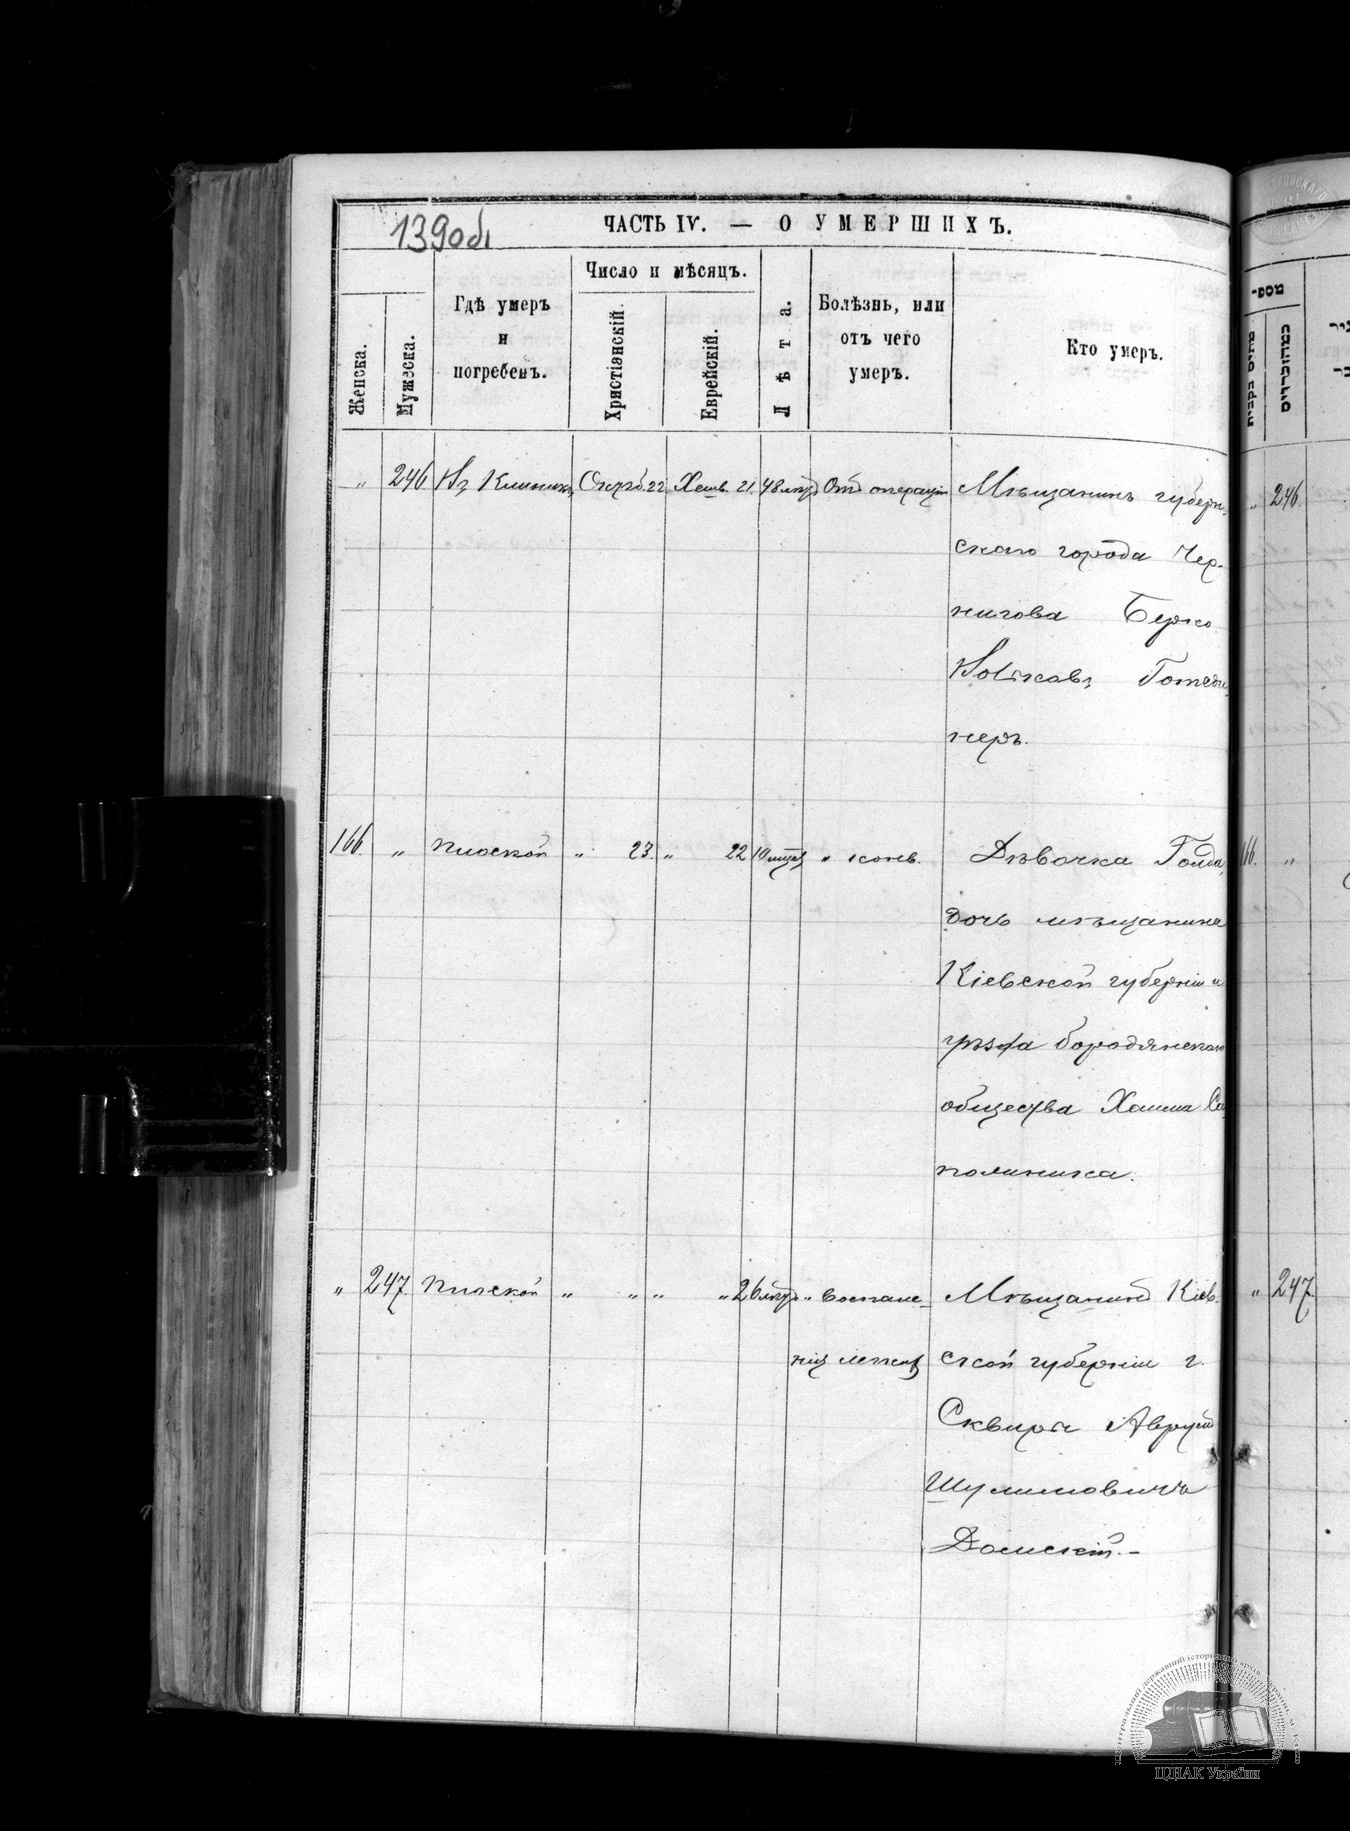 139об
ЧАСТЬ IV. — О УМЕРШИХЪ.
Женска.
Мужеска.
Гдѣ умеръ
и
погребенъ.
Число и мѣсяцъ.
Христіянскій.
Еврейскій.
Лѣта.
Болѣзнь, или
отъ чего
умеръ.
Кто умеръ.
" 246 Въ Клиникѣ Октяб. 22 Хешв. 21 48 лѣтъ Отъ операціи Мѣщанинъ губерн-
скаго города Чер-
нигова Берко
неръ.
166. " Плоской " 23. " 22 10 мѣсяц " конв. Дѣвочка Голда,
дочь мѣщанина
Кіевской губерніи и
уѣзда бородянскаго
общества Хаима
" 247 Плоской " " " " 26 лѣтъ " воспале-
нія легких Мѣщанинъ Кіев-
ской губерніи г.
Сквиры Аврумъ
Шулимовичъ
Домскій.–
מספר
נקבות
זכרים
" 246
166. "
" 247
ЦДІАК України